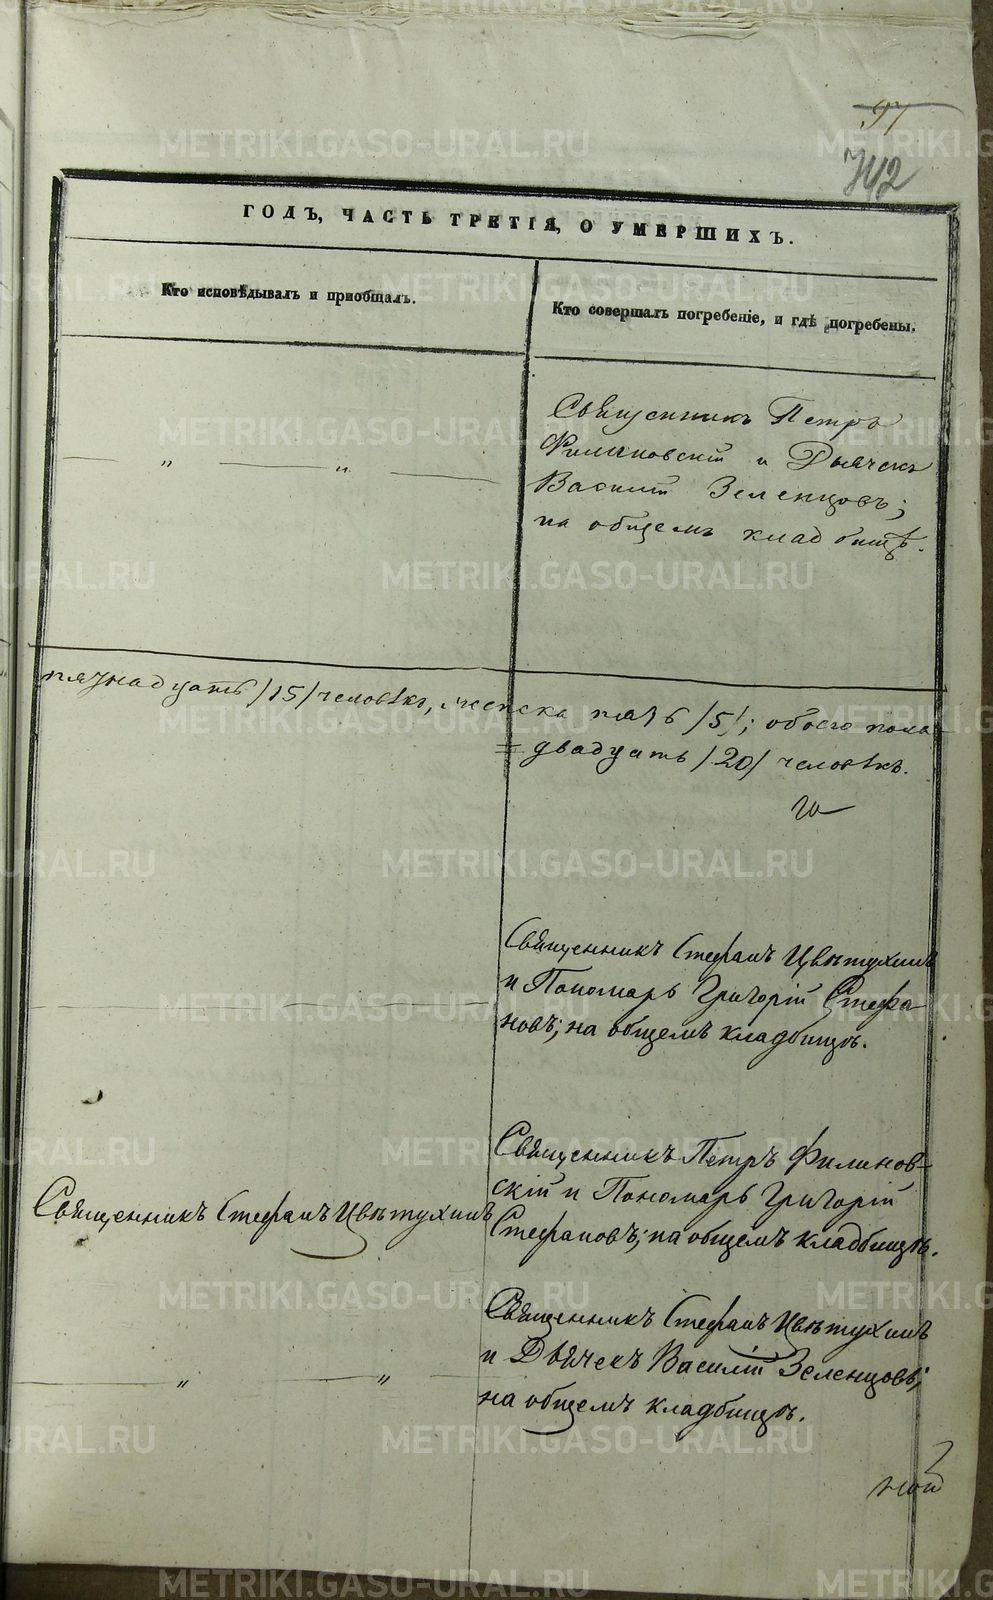 97
742
ГОДЪ, ЧАСТЬ ТРЕТІЯ, О УМЕРШИХЪ.
Кто исповѣдывалъ и пріобщалъ.
Кто совершалъ погребеніе, и гдѣ погребены.
Священникъ Петръ
Филиновскій и Дьячекъ
Василій Зеленцовъ;
на общемъ кладбищѣ.
пятнадцать /15/ человѣкъ, женска пять /5/; обоего пола
= двадцать /20/ человѣкъ.
Священникъ Стефанъ Цвѣтухинъ
и Пономарь Григорій Стефа
новъ; на общемъ кладбищѣ.
Священникъ Стефанъ Цвѣтухинъ
Священникъ Петръ Филинов-
скій и Пономарь Григорій
Стефановъ; на общемъ кладбищѣ.
Священникъ Стефанъ Цвѣтухинъ
и Дьячекъ Василій Зеленцовъ;
на общемъ кладбищѣ.
METRIKI.GASO-URAL.RU